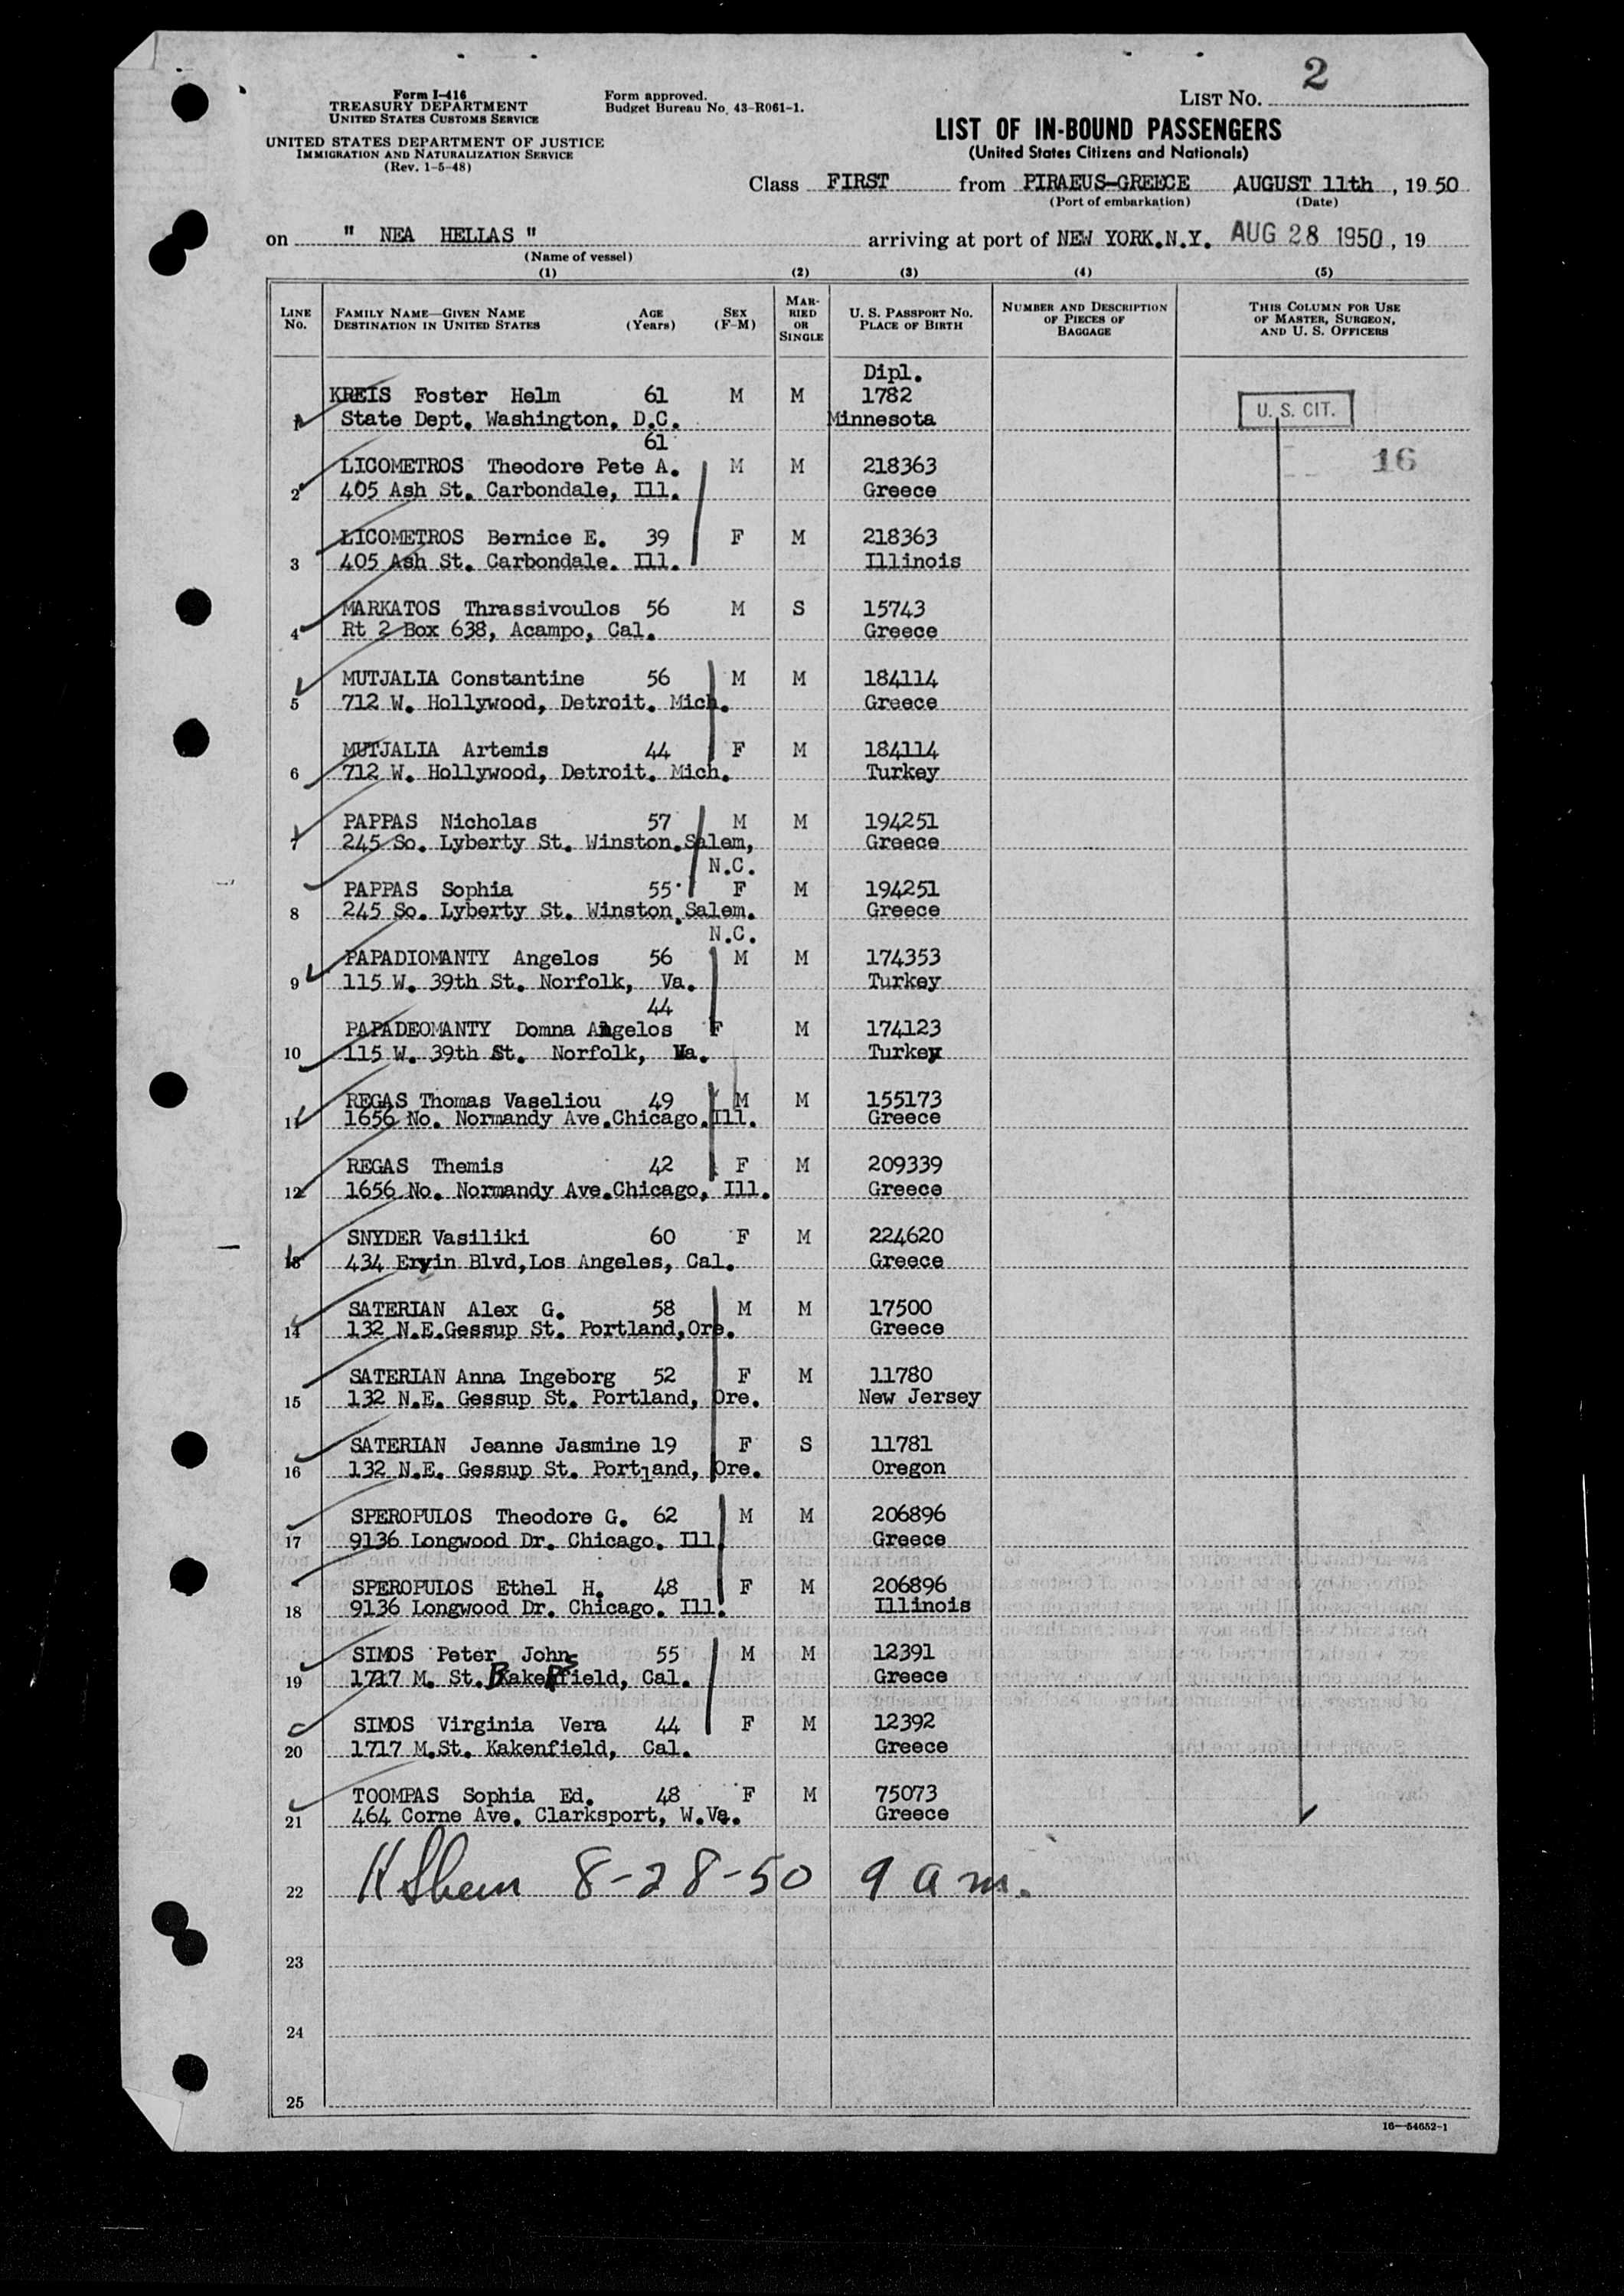 2
Form I-416
TREASURY DEPARTMENT
UNITED STATES CUSTOMS SERVICE
UNITED STATES DEPARTMENT OF JUSTICE
IMMIGRATION AND NATURALIZATION SERVICE
(Rev. 1-5-48)
Form approved.
Budget Bureau No. 43-R061-1.
LIST No.
LIST OF IN-BOUND PASSENGERS
(United States Citizens and Nationals)
Class FIRST from PIRAEUS-GREECE AUGUST 11th, 1950
(Port of embarkation) (Date)
on " NEA HELLAS " arriving at port of NEW YORK.N.Y. AUG 28 1950, 19
(Name of vessel)
(1) (2) (3) (4) (5)
LINE No. FAMILY NAME—GIVEN NAME DESTINATION IN UNITED STATES AGE (Years) SEX (F-M) MARRIED OR SINGLE U. S. PASSPORT No. PLACE OF BIRTH NUMBER AND DESCRIPTION OF PIECES OF BAGGAGE THIS COLUMN FOR USE OF MASTER, SURGEON, AND U. S. OFFICERS
Dipl.
KREIS Foster Helm 61 M M 1782
1 State Dept. Washington. D.C. Minnesota U. S. CIT.
61
LICOMETROS Theodore Pete A. M M 218363 16
2 405 Ash St. Carbondale, Ill. Greece
LICOMETROS Bernice E. 39 F M 218363
3 405 Ash St. Carbondale. Ill. Illinois
MARKATOS Thrassivoulos 56 M S 15743
4 Rt 2 Box 638, Acampo, Cal. Greece
MUTJALIA Constantine 56 M M 184114
5 712 W. Hollywood, Detroit. Mich. Greece
MUTJALIA Artemis 44 F M 184114
6 712 W. Hollywood, Detroit. Mich. Turkey
PAPPAS Nicholas 57 M M 194251
7 245 So. Lyberty St. Winston.Salem, Greece
N.C.
PAPPAS Sophia 55 F M 194251
8 245 So. Lyberty St. Winston.Salem. Greece
N.C.
PAPADIOMANTY Angelos 56 M M 174353
9 115 W. 39th St. Norfolk, Va. Turkey
44
PAPADEOMANTY Domna Angelos F M 174123
10 115 W. 39th St. Norfolk, Va. Turkey
REGAS Thomas Vaseliou 49 M M 155173
11 1656 No. Normandy Ave.Chicago.Ill. Greece
REGAS Themis 42 F M 209339
12 1656 No. Normandy Ave.Chicago, Ill. Greece
SNYDER Vasiliki 60 F M 224620
13 434 Ervin Blvd,Los Angeles, Cal. Greece
SATERIAN Alex G. 58 M M 17500
14 132 N.E.Gessup St. Portland,Ore. Greece
SATERIAN Anna Ingeborg 52 F M 11780
15 132 N.E. Gessup St. Portland, Ore. New Jersey
SATERIAN Jeanne Jasmine 19 F S 11781
16 132 N.E. Gessup St. Portland, Ore. Oregon
SPEROPULOS Theodore G. 62 M M 206896
17 9136 Longwood Dr. Chicago. Ill. Greece
SPEROPULOS Ethel H. 48 F M 206896
18 9136 Longwood Dr. Chicago. Ill. Illinois
SIMOS Peter John 55 M M 12391
19 1717 M. St. Bakersfield, Cal. Greece
SIMOS Virginia Vera 44 F M 12392
20 1717 M.St. Kakenfield, Cal. Greece
TOOMPAS Sophia Ed. 48 F M 75073
21 464 Corne Ave. Clarksport, W.Va. Greece
22 8-28-50 9 a m.
23
24
25
16—54652-1